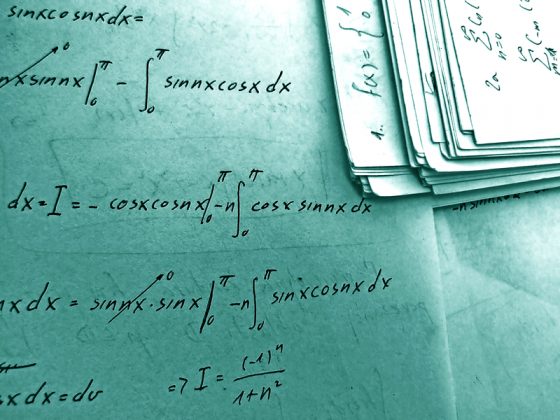 sinxcosnxdx=
nxsinnx|₀^π − ∫₀^π sinnxcosx dx
0
dx=I = − cosxcosnx|₀^π −n∫₀^π cosx sinnx dx
nx dx = sinnx·sinx|₀^π −n∫₀^π sinxcosnx dx
0
sx dx = dv
=> I = (-1)^n / 1+n²
1. f(x) = { 1 0
2a
∑ n=0 ∞